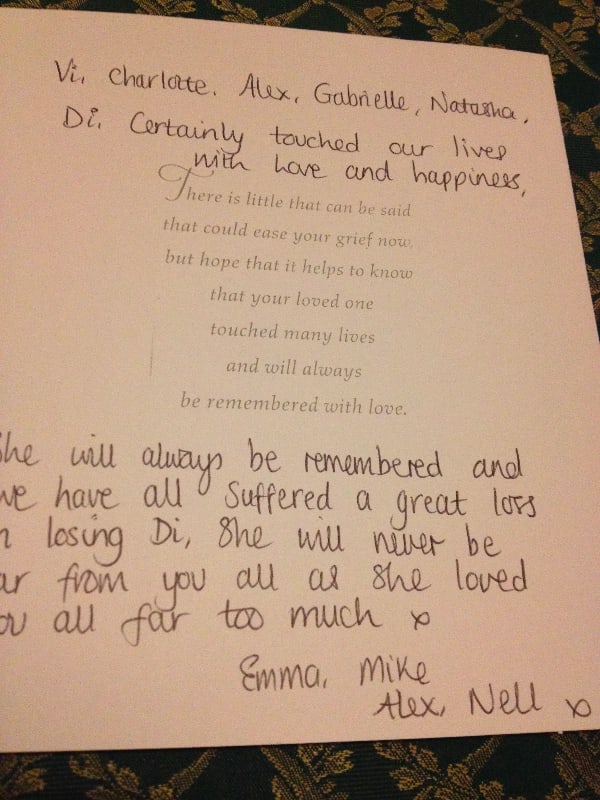 Vi, Charlotte. Alex, Gabrielle, Natasha,
Di, Certainly touched our lives
with Love and happiness,
There is little that can be said
that could ease your grief now,
but hope that it helps to know
that your loved one
touched many lives
and will always
be remembered with love.
She will always be remembered and
we have all Suffered a great loss
losing Di, She will never be
from you all as She loved
all far too much x
Emma, Mike
Alex, Nell x